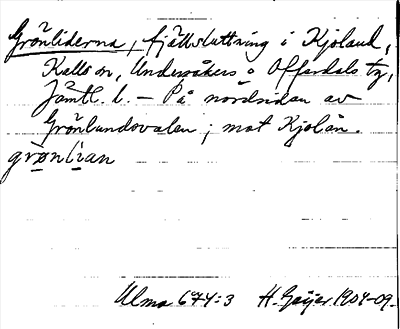 Grönliderna, fjällsluttning i Kjoland,
Kalls sn, Undersåkers o Offerdals tg,
Jämtl. l. – På nordsidan av
Grönlundsvalen; mot Kjolån.
grønlian
Ulma 674:3 H. Geijer 1904-09.